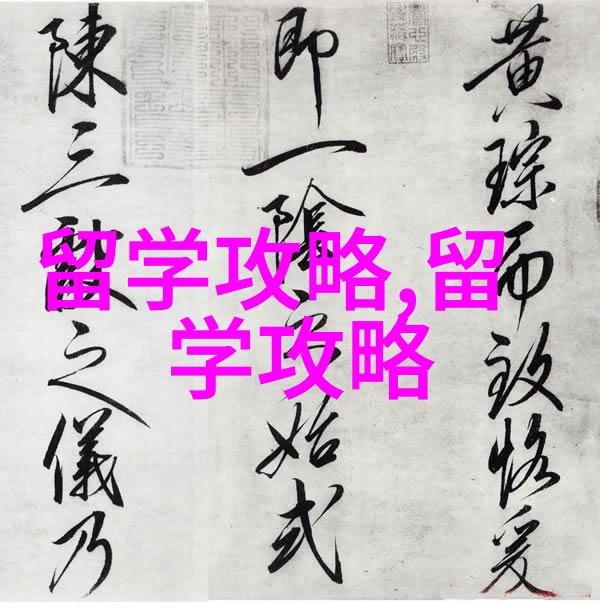 黄琮而致恪爰
即一陰之始式
陳三獻之儀乃
留学攻略,留
学攻略